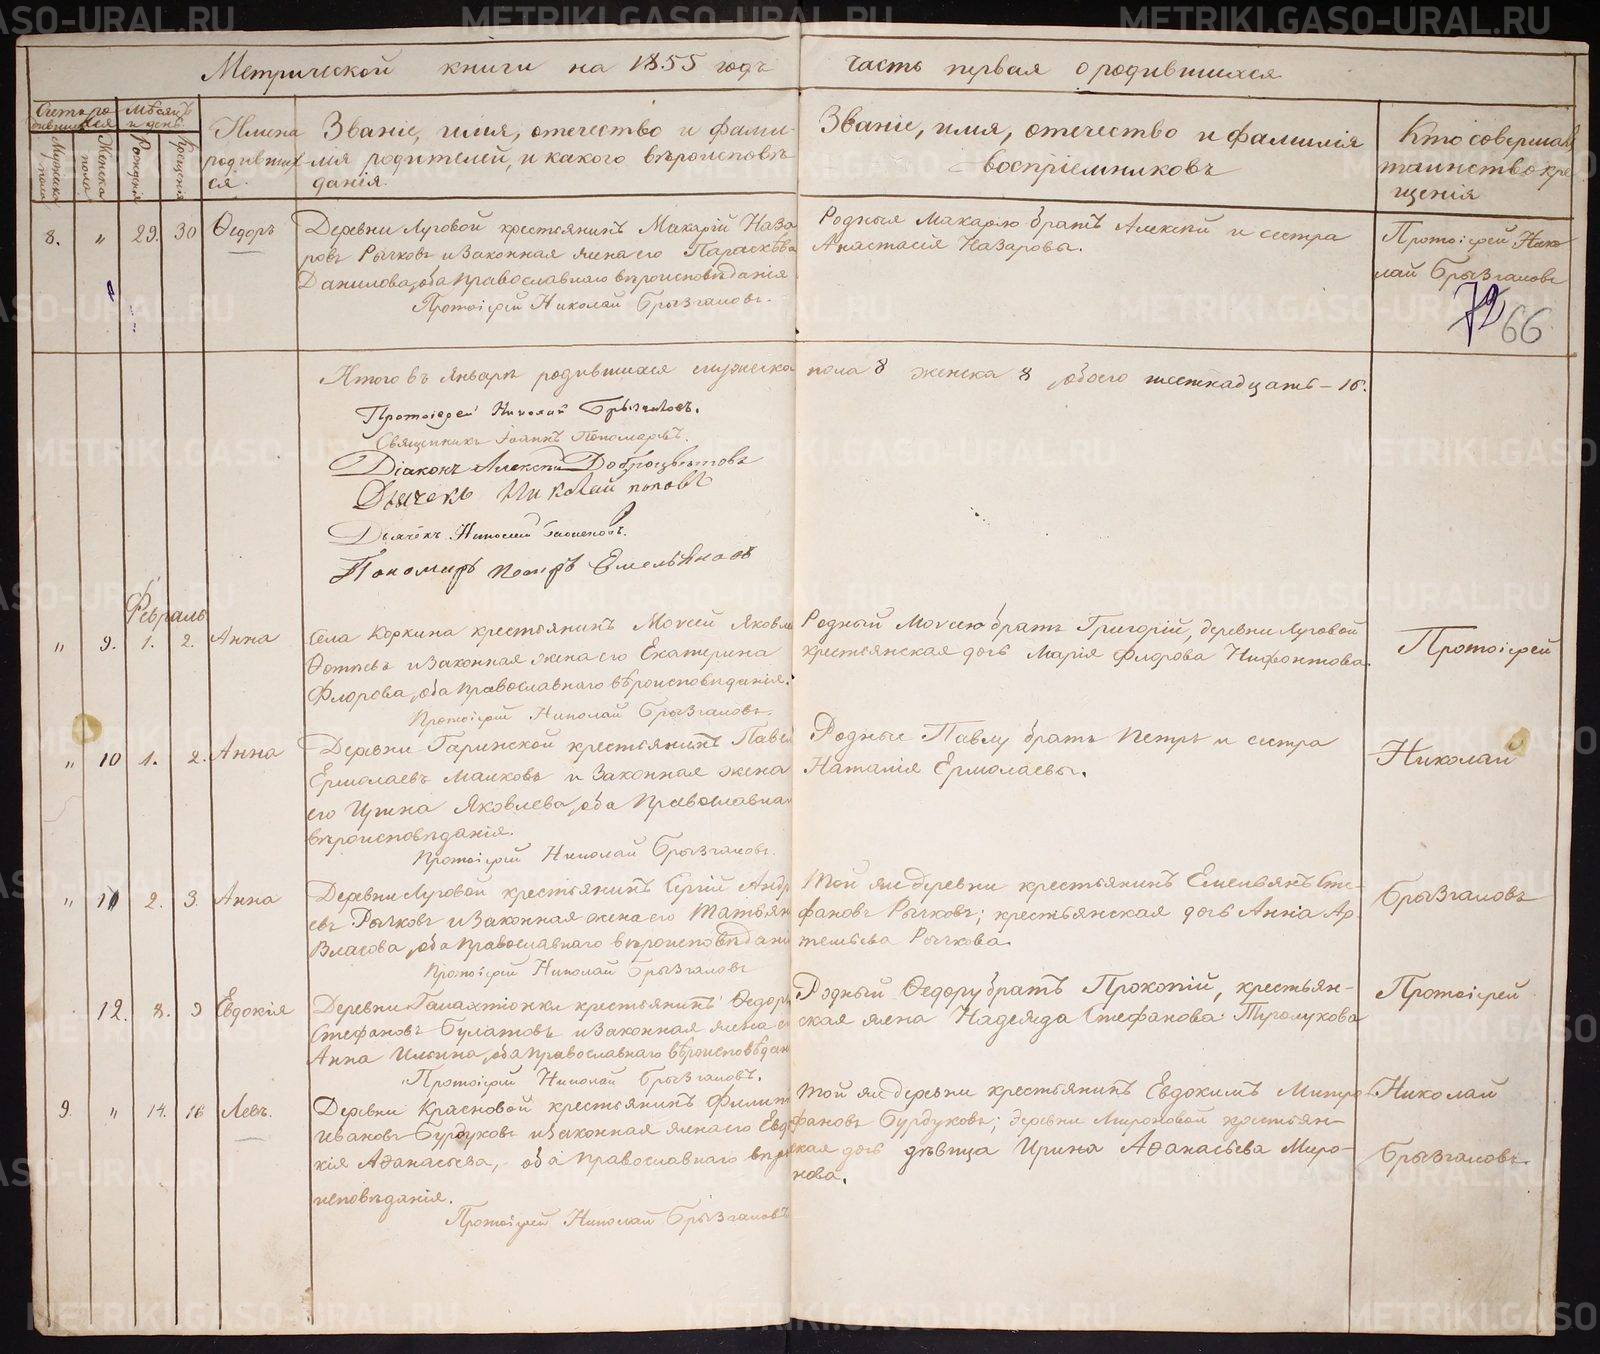 Метрической книги на 1855 годъ часть первая о родившихся
Счетъ родившихся
Мѣсяцъ и день
Мужеска пола
Женска пола
Рожденія
Крещенія
Имена родившихся.
Званіе, имя, отечество и фамилия родителей, и какого вѣроисповѣданія.
Званіе, имя, отечество и фамилія воспріемниковъ
Кто совершалъ таинство крещенія
8. „ 29. 30 Ѳедоръ
Деревни Луговой крестьянинъ Макарій Наза
ровъ Рычковъ и законная жена его Параскѣва
Данилова, оба православнаго вѣроисповѣданія
Протоіерей Николай Брызгаловъ.
Родныя Макарію братъ Алексѣй и сестра
Анастасія Назаровы.
Протоіерей Нико
лай Брызгаловъ
72 66
Итого въ Январѣ родившихся мужеска пола 8 женска 8 обоего шестнадцать – 16.
Протоіерей Николай Брызгаловъ.
Священникъ Іоаннъ Пономаревъ.
Діаконъ Алексѣй Доброцвѣтовъ
Дьячекъ Николай Поповъ
Дьячекъ Николай
Пономарь Петръ Емельяновъ
Февраль
„ 9. 1. 2. Анна
Села Коркина крестьянинъ Моисей Яковле
Ѳотеевъ и законная жена его Екатерина
Флорова, оба православнаго вѣроисповѣданія.
Протоіерей Николай Брызгаловъ.
Родный Моисею братъ Григорій, деревни Луговой
крестьянская дочь Марія Флорова Нифонтова.
Протоіерей
„ 10 1. 2. Анна
Деревни Гаринской крестьянинъ Павел
Ермолаевъ Малковъ и законная жена
его Ирина Яковлева, оба православнаг
вѣроисповѣданія.
Протоіерей Николай Брызгаловъ.
Родные Павлу братъ Петръ и сестра
Наталія Ермолаевы.
Николай
„ 11 2. 3. Анна
Деревни Луговой крестьянинъ Сергій Андр
евъ Рычковъ и законная жена его Татьян
Власова, оба православнаго вѣроисповѣдані
Протоіерей Николай Брызгаловъ
Той же деревни крестьянинъ Емельянъ Сте-
фановъ Рычковъ; крестьянская дочь Анна Ар
темьева Рычкова.
Брызгаловъ
12. 8. 9 Евдокія
Деревни Галактіонки крестьянинъ Ѳедоръ
Стефановъ Булатовъ и законная жена е
Анна Ильина, оба православнаго вѣроисповѣдан
Протоіерей Николай Брызгаловъ.
Родный Ѳедору братъ Прокопій, крестьян-
ская жена Надежда Стефанова
Протоіерей
9. „ 14. 16 Левъ.
Деревни Красновой крестьянинъ Филип
Ивановъ Бурдуковъ и законная жена его Евдо
кія Аѳанасьева, оба православнаго вѣро
исповѣданія.
Протоіерей Николай Брызгаловъ
Той же деревни крестьянинъ Евдокимъ Митро-
фановъ Бурдуковъ; деревни Мироновой крестьян-
ская дочь дѣвица Ирина Аѳанасьева Миро-
нова.
Николай
Брызгаловъ
METRIKI.GASO-URAL.RU